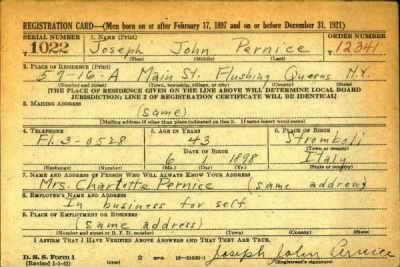 REGISTRATION CARD—(Men born on or after February 17, 1897 and on or before December 31, 1921)
SERIAL NUMBER 1. NAME (Print) ORDER NUMBER
1022 Joseph John Pernice 12341
(First) (Middle) (Last)
2. PLACE OF RESIDENCE (Print)
57-16-A Main St. Flushing Queens N.Y.
(Number and street) (Town, township, village, or city) (County) (State)
[THE PLACE OF RESIDENCE GIVEN ON THE LINE ABOVE WILL DETERMINE LOCAL BOARD
JURISDICTION; LINE 2 OF REGISTRATION CERTIFICATE WILL BE IDENTICAL]
3. MAILING ADDRESS
(same)
[Mailing address if other than place indicated on line 2. If same insert word same]
4. TELEPHONE 5. AGE IN YEARS 6. PLACE OF BIRTH
Fl. 3-0528 43 Stromboli
DATE OF BIRTH (Town or county)
6 1 1898 Italy
(Exchange) (Number) (Mo.) (Day) (Yr.) (State or country)
7. NAME AND ADDRESS OF PERSON WHO WILL ALWAYS KNOW YOUR ADDRESS
Mrs. Charlotte Pernice (same address)
8. EMPLOYER'S NAME AND ADDRESS
In business for self
9. PLACE OF EMPLOYMENT OR BUSINESS
(same address)
(Number and street or R. F. D. number) (Town) (County) (State)
I AFFIRM THAT I HAVE VERIFIED ABOVE ANSWERS AND THAT THEY ARE TRUE.
D. S. S. Form 1
(Revised 1-1-42) (over) GPO Joseph John Pernice
(Registrant's signature)